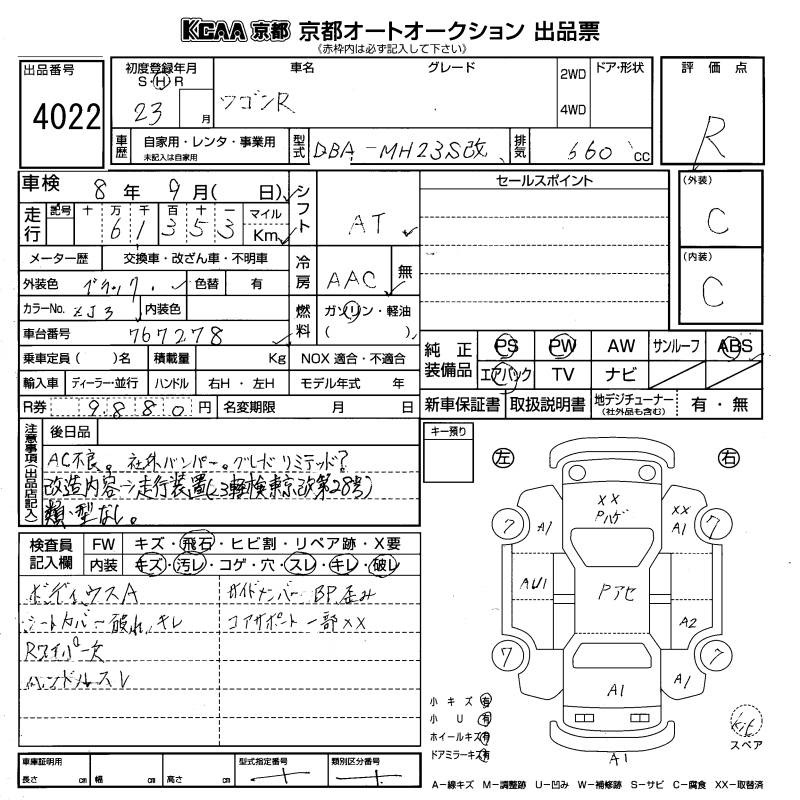 KCAA 京都 京都オートオークション 出品票
《赤枠内は必ず記入して下さい》
出品番号
4022
初度登録年月
S・H・R
23 月
車名
グレード
ワゴンR
2WD
4WD
ドア・形状
評価点
R
車歴
自家用・レンタ・事業用
未記入は自家用
型式
DBA-MH23S改
排気
660 cc
車検 8年 9月( 日)
シフト
AT
走行
記号 十 万 千 百 十 一 マイル
6 1 3 5 3 Km
メーター歴 交換車・改ざん車・不明車
冷房
AAC
無
外装色 ブラック 色替 有
カラーNo. ZJ3 内装色
燃料
ガソリン・軽油
( )
車台番号 767278
乗車定員( )名 積載量 Kg NOX 適合・不適合
輸入車 ディーラー・並行 ハンドル 右H・左H モデル年式 年
R券 9880 円 名変期限 月 日
セールスポイント
(外装)
C
(内装)
C
純正装備品
PS PW AW サンルーフ ABS
エアバック TV ナビ
新車保証書 取扱説明書 地デジチューナー(社外品も含む) 有・無
注意事項(出品店記入)
後日品
AC不良。社外バンパー。グレードリミテッド?
改造内容→走行装置(3軽検東京改第28号)
類・型なし。
キー預り
検査員記入欄
FW キズ・飛石・ヒビ割・リペア跡・X要
内装 キズ・汚レ・コゲ・穴・スレ・キレ・破レ
ボディウスA
シートカバー破れ、キレ
Rワイパー欠
ハンドルスレ
ガイドナンバーBP歪み
コアサポート一部XX
左
右
XX
Pハゲ
XX
A1
7
A1
7
AU1
Pアセ
A2
7
7
A1
A1
A1
小キズ 有
小U 有
ホイールキズ 有
ドアミラーキズ 有
kit
スペア
車庫証明用
長さ cm 幅 cm 高さ cm
型式指定番号
類別区分番号
A―線キズ M―調整跡 U―凹み W―補修跡 S―サビ C―腐食 XX―取替済